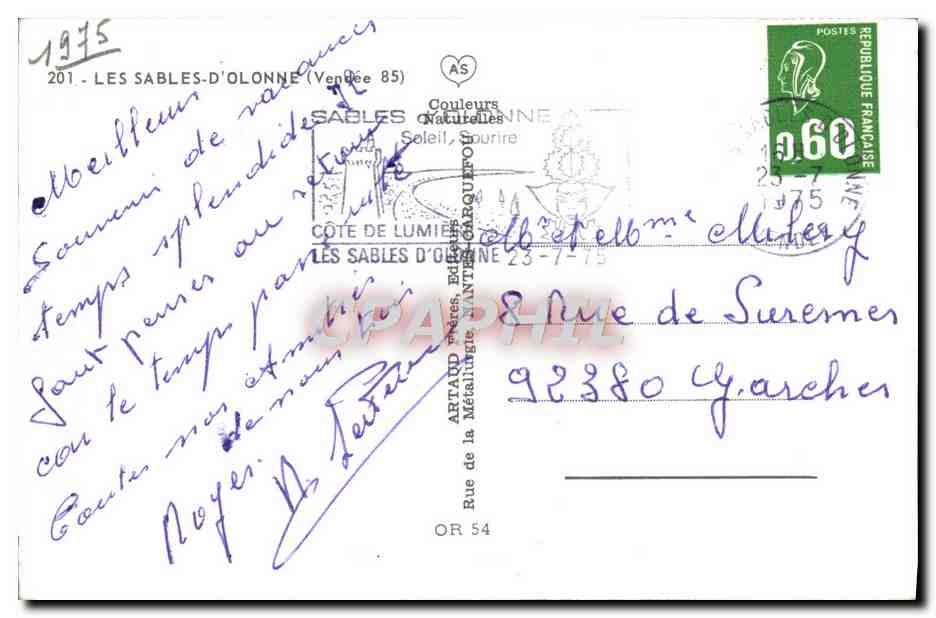 1975
201 - LES SABLES-D'OLONNE (Vendée 85)
AS
Couleurs
Naturelles
POSTES
REPUBLIQUE FRANÇAISE
0,60
SABLES D'OLONNE
Soleil, Sourire
COTE DE LUMIERE
LES SABLES D'OLONNE 23-7-75
23-7
1975
Meilleur
Souvenir de vacances
temps splendide Il
faut penser au retour
car le temps passe vite
Toutes nos Amitiés
de nous
Roger
ARTAUD Frères, Editeurs
Rue de la Métallurgie, NANTES-CARQUEFOU
CPAPHIL
Mr et Mme
8 Rue de Suresnes
92380 Garches
OR 54